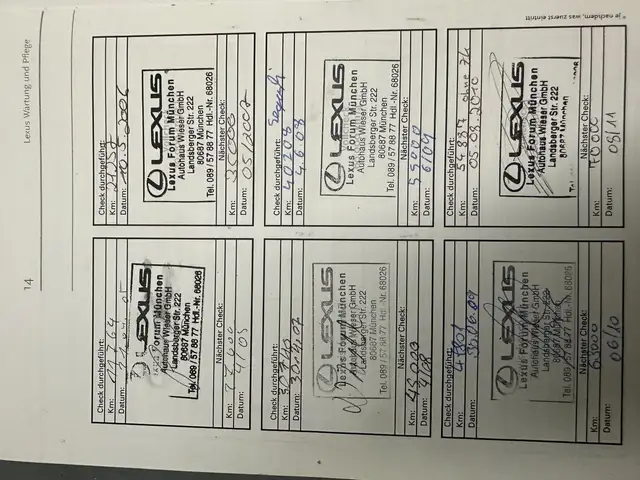 14
Lexus Wartung und Pflege
Check durchgeführt:
Km:
Datum:
LEXUS
Forum München
Autohaus Wieser GmbH
Landsberger Str. 222
80687 München
Tel. 089 / 57 88 77 Hdl.-Nr. 68026
Nächster Check:
Km:
Datum: 4/05
Check durchgeführt:
Km:
Datum: 10.5.2006
LEXUS
Lexus Forum München
Autohaus Wieser GmbH
Landsberger Str. 222
80687 München
Tel. 089 / 57 88 77 Hdl.-Nr. 68026
Nächster Check:
Km: 35000
Datum: 05/2007
Check durchgeführt:
Km: 30740
Datum: 30.4.07
LEXUS
Lexus Forum München
Autohaus Wieser GmbH
Landsberger Str. 222
80687 München
Tel. 089 / 57 88 77 Hdl.-Nr. 68026
Nächster Check:
Km: 45000
Datum: 4/08
Check durchgeführt:
Km: 40208
Datum: 4.6.08
LEXUS
Lexus Forum München
Autohaus Wieser GmbH
Landsberger Str. 222
80687 München
Tel. 089 / 57 88 77 Hdl.-Nr. 68026
Nächster Check:
Km: 55000
Datum: 6/09
Check durchgeführt:
Km:
Datum: 30.06.09
LEXUS
Lexus Forum München
Autohaus Wieser GmbH
Landsberger Str. 222
80687 München
Tel. 089 / 57 88 77 Hdl.-Nr. 68026
Nächster Check:
Km: 63000
Datum: 06/10
Check durchgeführt:
Km: 54887 ohne
Datum: 05.08.2010
LEXUS
Lexus Forum München
Autohaus Wieser GmbH
Landsberger Str. 222
80687 München
Tel.
Nächster Check:
Km: 70000
Datum: 08/11
* je nachdem, was zuerst eintritt